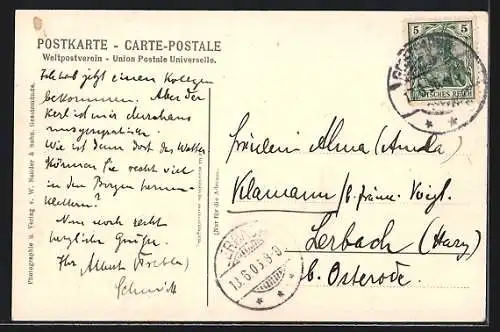 POSTKARTE - CARTE-POSTALE
Weltpostverein - Union Postale Universelle.
Ich hab jetzt einen Kollegen
bekommen. Aber der
Kerl ist mir durchaus
unsympathisch.
Wie ist denn dort das Wetter
Können Sie recht viel
in den Bergen herum-
klettern?
Nun noch recht
herzliche Grüße.
Ihr Albert
Schmidt
Photographie u. Verlag v. W. Nändler & Sohn,
(Nur für die Adresse)
5 5
DEUTSCHES REICH
Fräulein Alma (Amda)
Klamann / b. Fräul. Voigt.
Lerbach (Harz)
b. Osterode.
LERBACH
13.6.05. 8-9